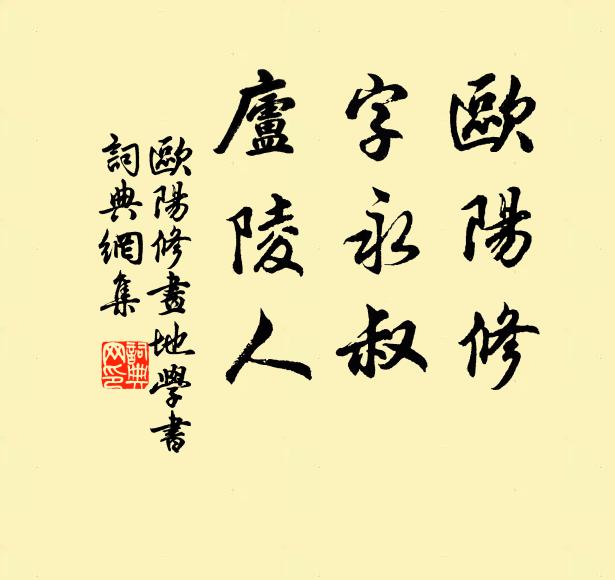 歐陽修
字永叔
廬陵人
歐陽修畫地學書
詞典網集
詞典網印